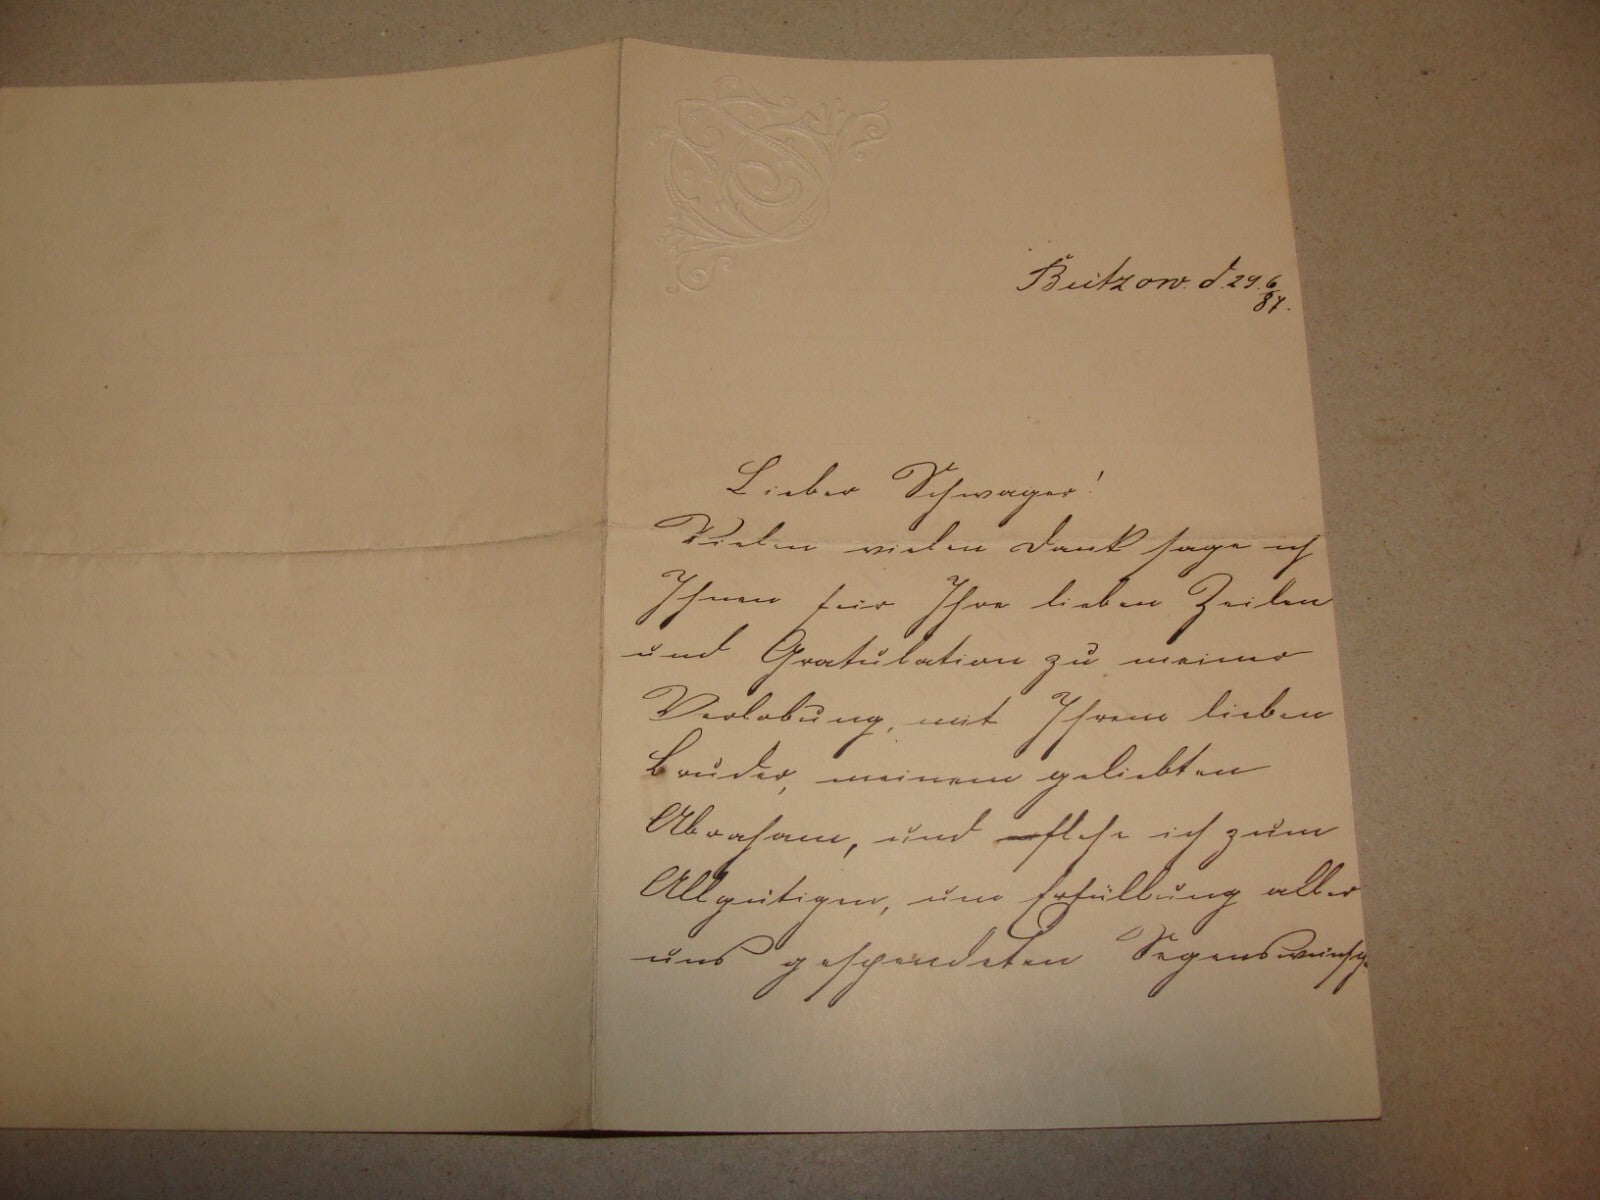 Bützow. d. 29. 6/87.
Lieber Schwager!
Vielen vielen Dank sage ich
Ihnen für Ihre lieben Zeilen
und Gratulation zu meiner
Verlobung, mit Ihrem lieben
Bruder, meinem geliebten
Abraham, und flehe ich zum
Allgütigen, um Erfüllung aller
uns gespendeten Segenswünsche